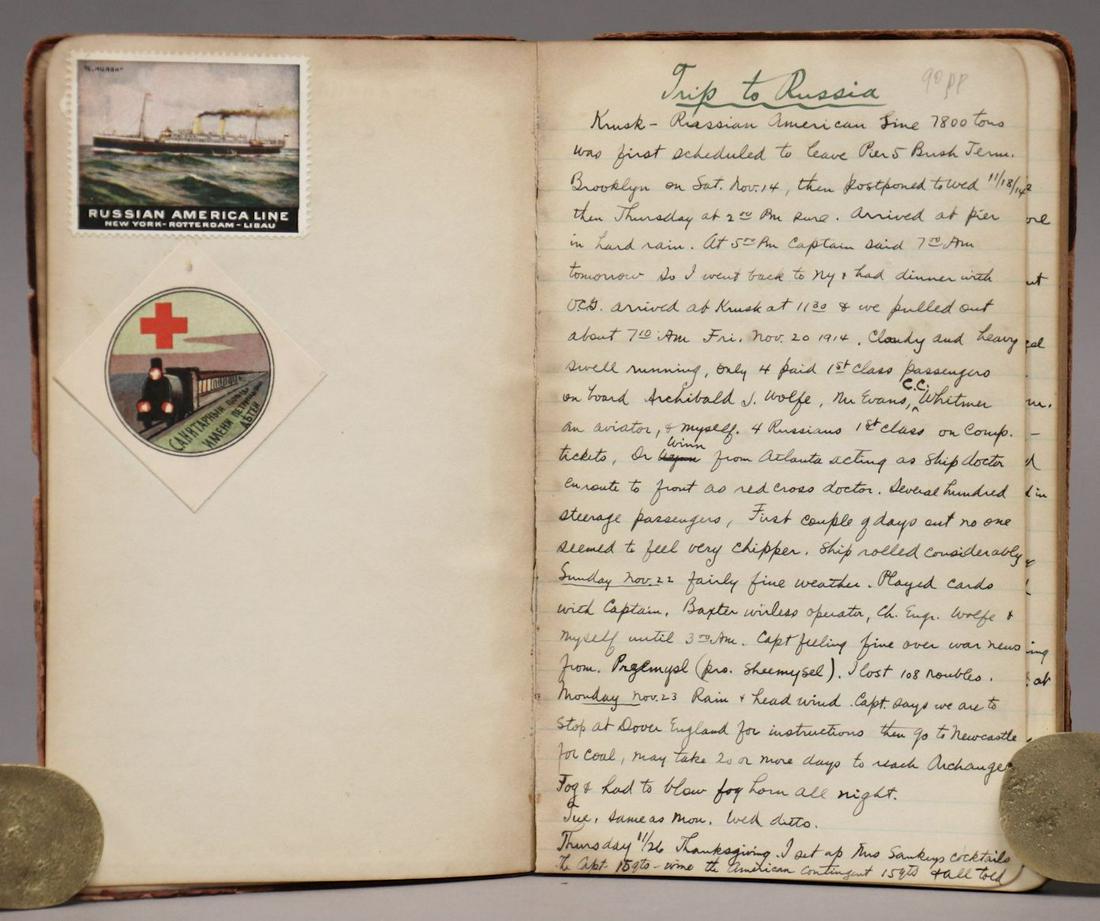 RUSSIAN AMERICA LINE
NEW YORK-ROTTERDAM-LIBAU
САНИТАРНЫЙ
ИМЕНИ
ДѢТЕЙ
90 pp
Trip to Russia
Krusk - Russian American Line 7800 tons
was first scheduled to leave Pier 5 Bush Term.
Brooklyn on Sat. Nov. 14, then postponed to Wed 11/18/14
then Thursday at 2 00 Pm sure. Arrived at pier
in hard rain. At 5 00 Pm Captain said 7 00 Am
tomorrow so I went back to Ny & had dinner with
arrived at Krusk at 11 30 & we pulled out
about 7 10 Am Fri. Nov. 20 1914. Cloudy and heavy
swell running, only 4 paid 1st class passengers
on board Archibald J. Wolfe, Mr Evans, C.C. Whitmer
an aviator, & myself. 4 Russians 1st class on Comp.
tickets, Dr Winn from Atlanta acting as ship doctor
enroute to front as red cross doctor. Several hundred
steerage passengers, First couple of days out no one
seemed to feel very chipper. Ship rolled considerably
Sunday Nov. 22 fairly fine weather. Played cards
with Captain, Baxter wirless operator, Ch. Engr. Wolfe &
myself until 3 00 Am. Capt feeling fine over war news
from. Przemysl (pro. Sheemysel). I lost 108 roubles.
Monday Nov. 23 Rain & head wind. Capt. says we are to
stop at Dover England for instructions then go to Newcastle
for coal, may take 20 or more days to reach Archangel
Fog & had to blow fog horn all night.
Tue. same as Mon. Wed ditto.
Thursday 11/26 Thanksgiving. I set up Mrs Sankeys cocktails
the Capt. 15 qts - wine the American contingent 15 qts & all told